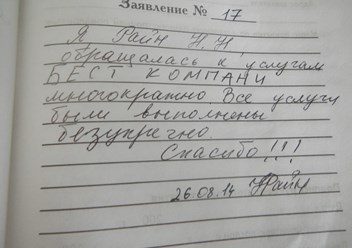 Заявление № 17
Я Райн Н.Н
обращалась к услугам
БЕСТ КОМПАНИ
многократно. Все услуги
были выполнены
безупречно.
Спасибо!!!
26.08.14 НРайн